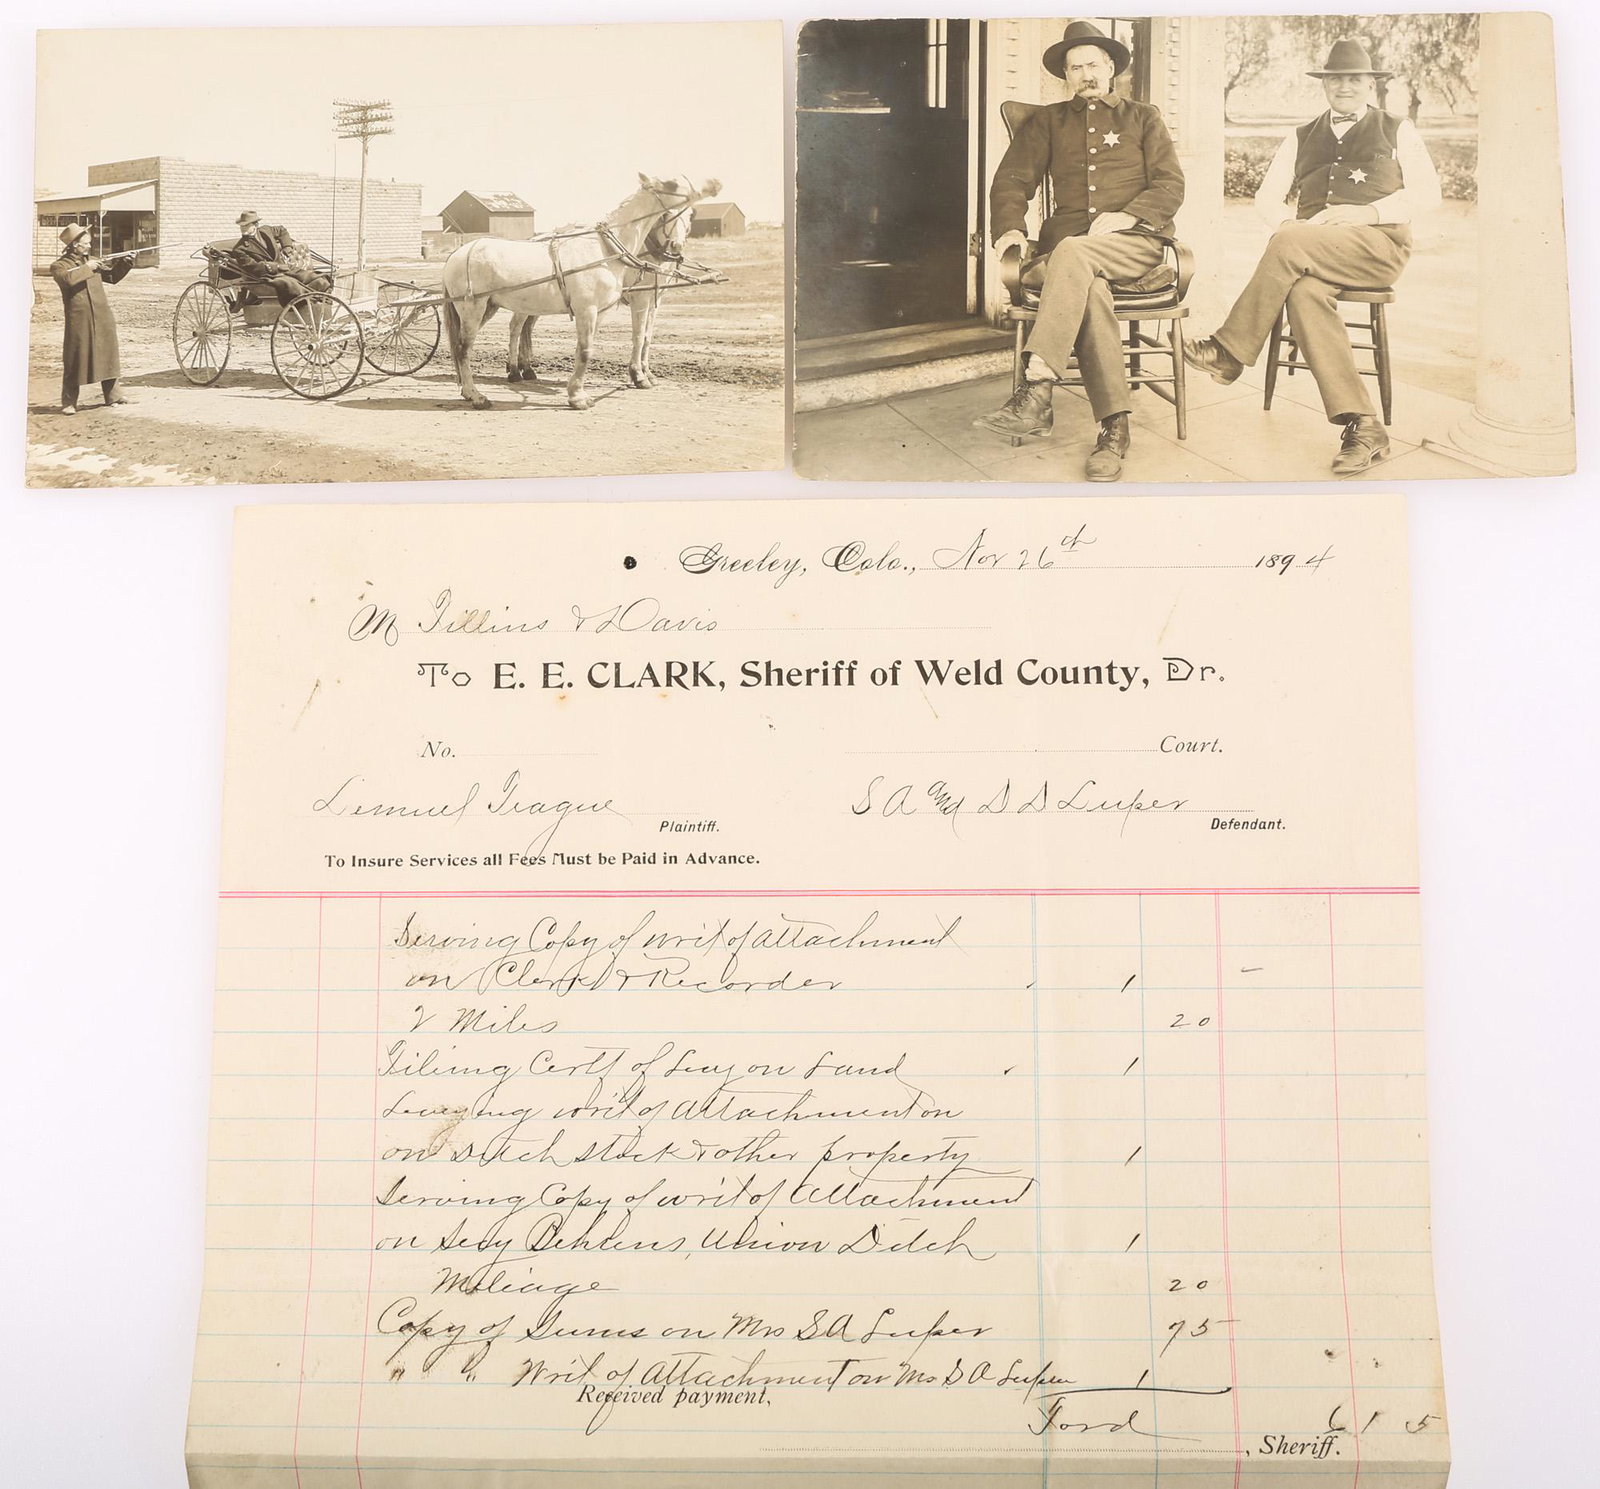 Greeley, Colo., Nov 26th 1894
M Tillins & Davis
To E. E. CLARK, Sheriff of Weld County, Dr.
No. Court.
Lemuel Teague Plaintiff. S A and D D Luper Defendant.
To Insure Services all Fees Must be Paid in Advance.
Serving Copy of writ of attachment
on Clerk & Recorder 1 –
2 Miles 20
Filing Certf of Levy on Land 1
Leveying writ of Attachment on
on Ditch stock & other property 1
Serving Copy of writ of Attachment
on Secy Behrens, Union Ditch 1
Mileage 20
Copy of Sums on Mrs S A Luper 75
" " Writ of Attachment on Mrs S A Luper 1
Received payment,
Ford 6 15
, Sheriff.